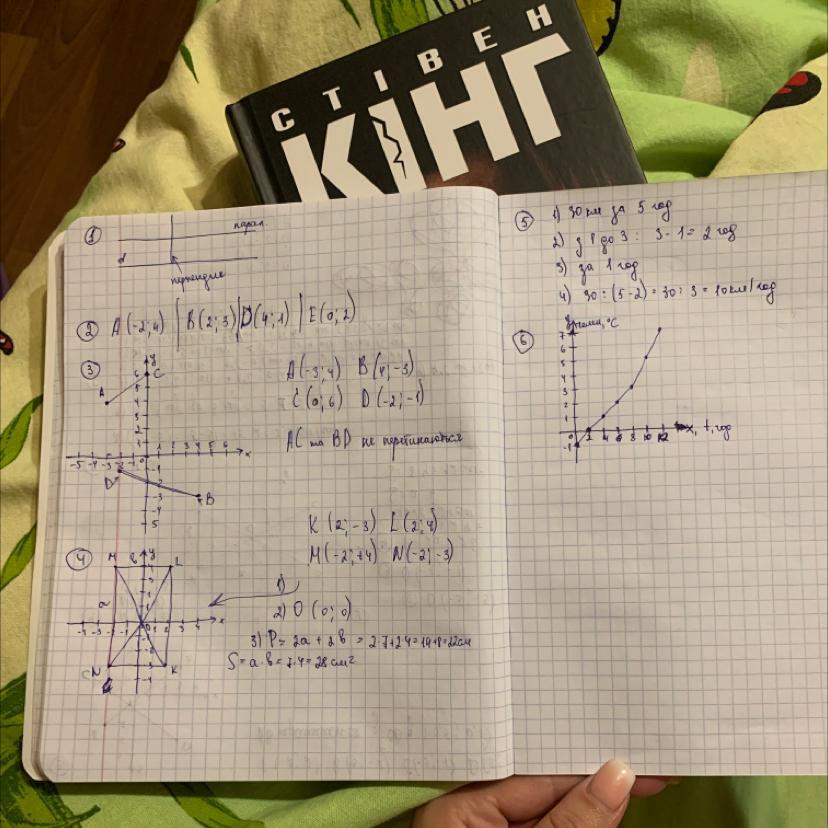 СТІВЕН
КІНГ
1
парал.
d
2 A(-2;4) | B(2;3) | D(4;1) | E(0;2)
3
A(-3;4) B(4;-3)
C(0;6) D(-2;-1)
AC та BD не перетинаються
y
6 C
A
5
4
3
2
1
-5 -4 -3 -2 -1 0 1 2 3 4 5 6 x
-1
D
-3 B
-4
5
K(2;-3) L(2;4)
M(-2;+4) N(-2;-3)
4
M y L
a
x
N K
1)
2) O (0;0)
3) P = 2a + 2b = 2·7+2·4=14+8=22см
S = a·b = 7·4 = 28 см²
5 1) 30 км за 5 год
2) з 1 до 3 : 3-1 = 2 год
3) за 1 год
4) 30 : (5-2) = 30 : 3 = 10 км/год
6
°C
7
6
5
4
3
2
1
0 2 4 6 8 10 12 x, t, год
-1